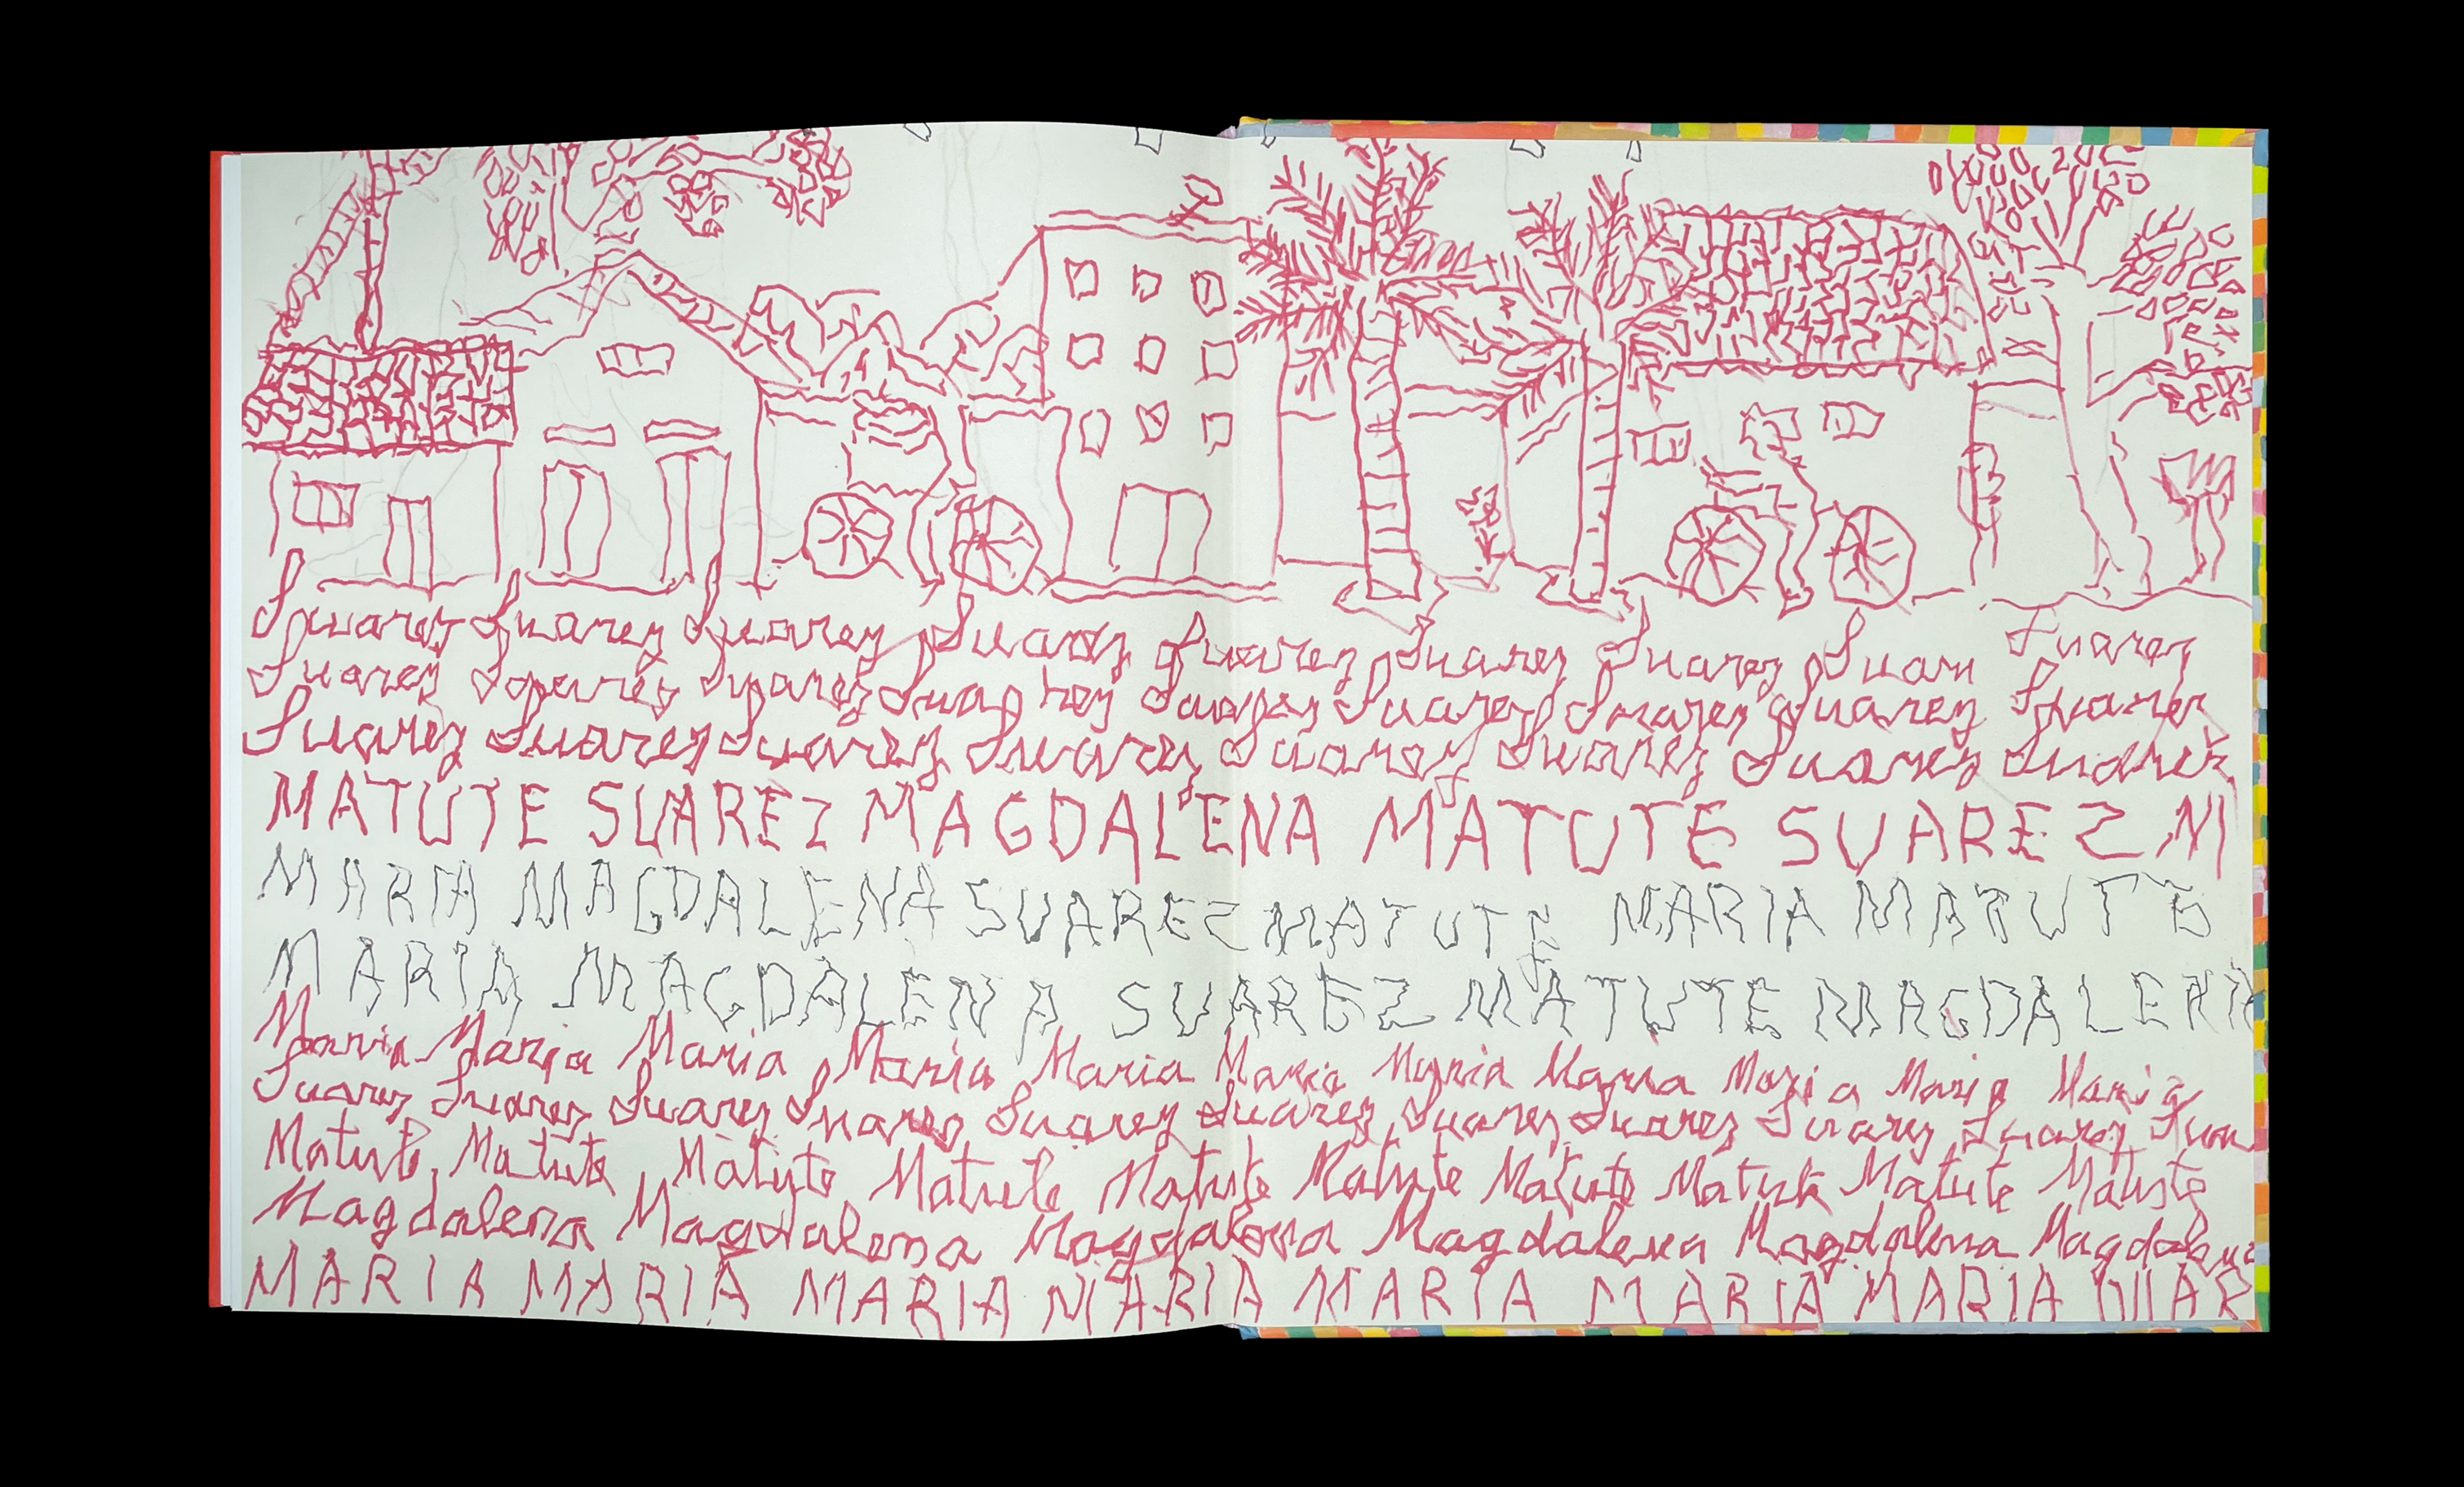 Suarez Suarez Suarez Suarez Suarez Suarez Suarez Suare Suarez
Suarez Suarez Suarez Sua rez Suarez Suarez Suarez Suarez Suarez
Suarez Suarez Suarez Suarez Suarez Suarez Suarez Suarez
MATUTE SUAREZ MAGDALENA MATUTE SUAREZ M
MARIA MAGDALENA SUAREZ MATUTE MARIA MATUTE
MARIA MAGDALENA SUAREZ MATUTE MAGDALENA
Maria Maria Maria Maria Maria Maria Maria Maria Maria Maria Maria
Suarez Suarez Suarez Suarez Suarez Suarez Suarez Suarez Suarez Suarez Sua
Matute Matute Matute Matute Matute Matute Matute Matute Matute Matute
Magdalena Magdalena Magdalena Magdalena Magdalena Magdalena
MARIA MARIA MARIA MARIA MARIA MARIA MARIA MAR